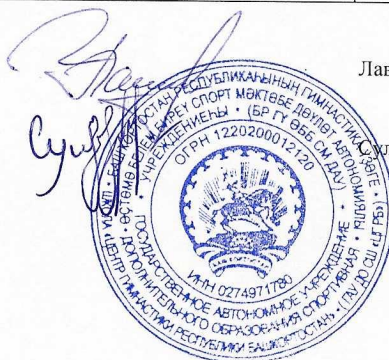 Лав
Сул
БАШҠОРТОСТАН РЕСПУБЛИКАҺЫНЫҢ ГИМНАСТИКА ҮҘӘГЕ
ӨҪТӘМӘ БЕЛЕМ БИРЕҮ СПОРТ МӘКТӘБЕ ДӘҮЛӘТ АВТОНОМИЯЛЫ
УЧРЕЖДЕНИЕҺЫ • (БР ГҮ ӨББ СМ ДАУ) •
ОГРН 1220200012120
ИНН 0274971780
ГОСУДАРСТВЕННОЕ АВТОНОМНОЕ УЧРЕЖДЕНИЕ
ДОПОЛНИТЕЛЬНОГО ОБРАЗОВАНИЯ СПОРТИВНАЯ
ШКОЛА «ЦЕНТР ГИМНАСТИКИ РЕСПУБЛИКИ БАШКОРТОСТАН» • (ГАУ ДО СШ ЦГ РБ)